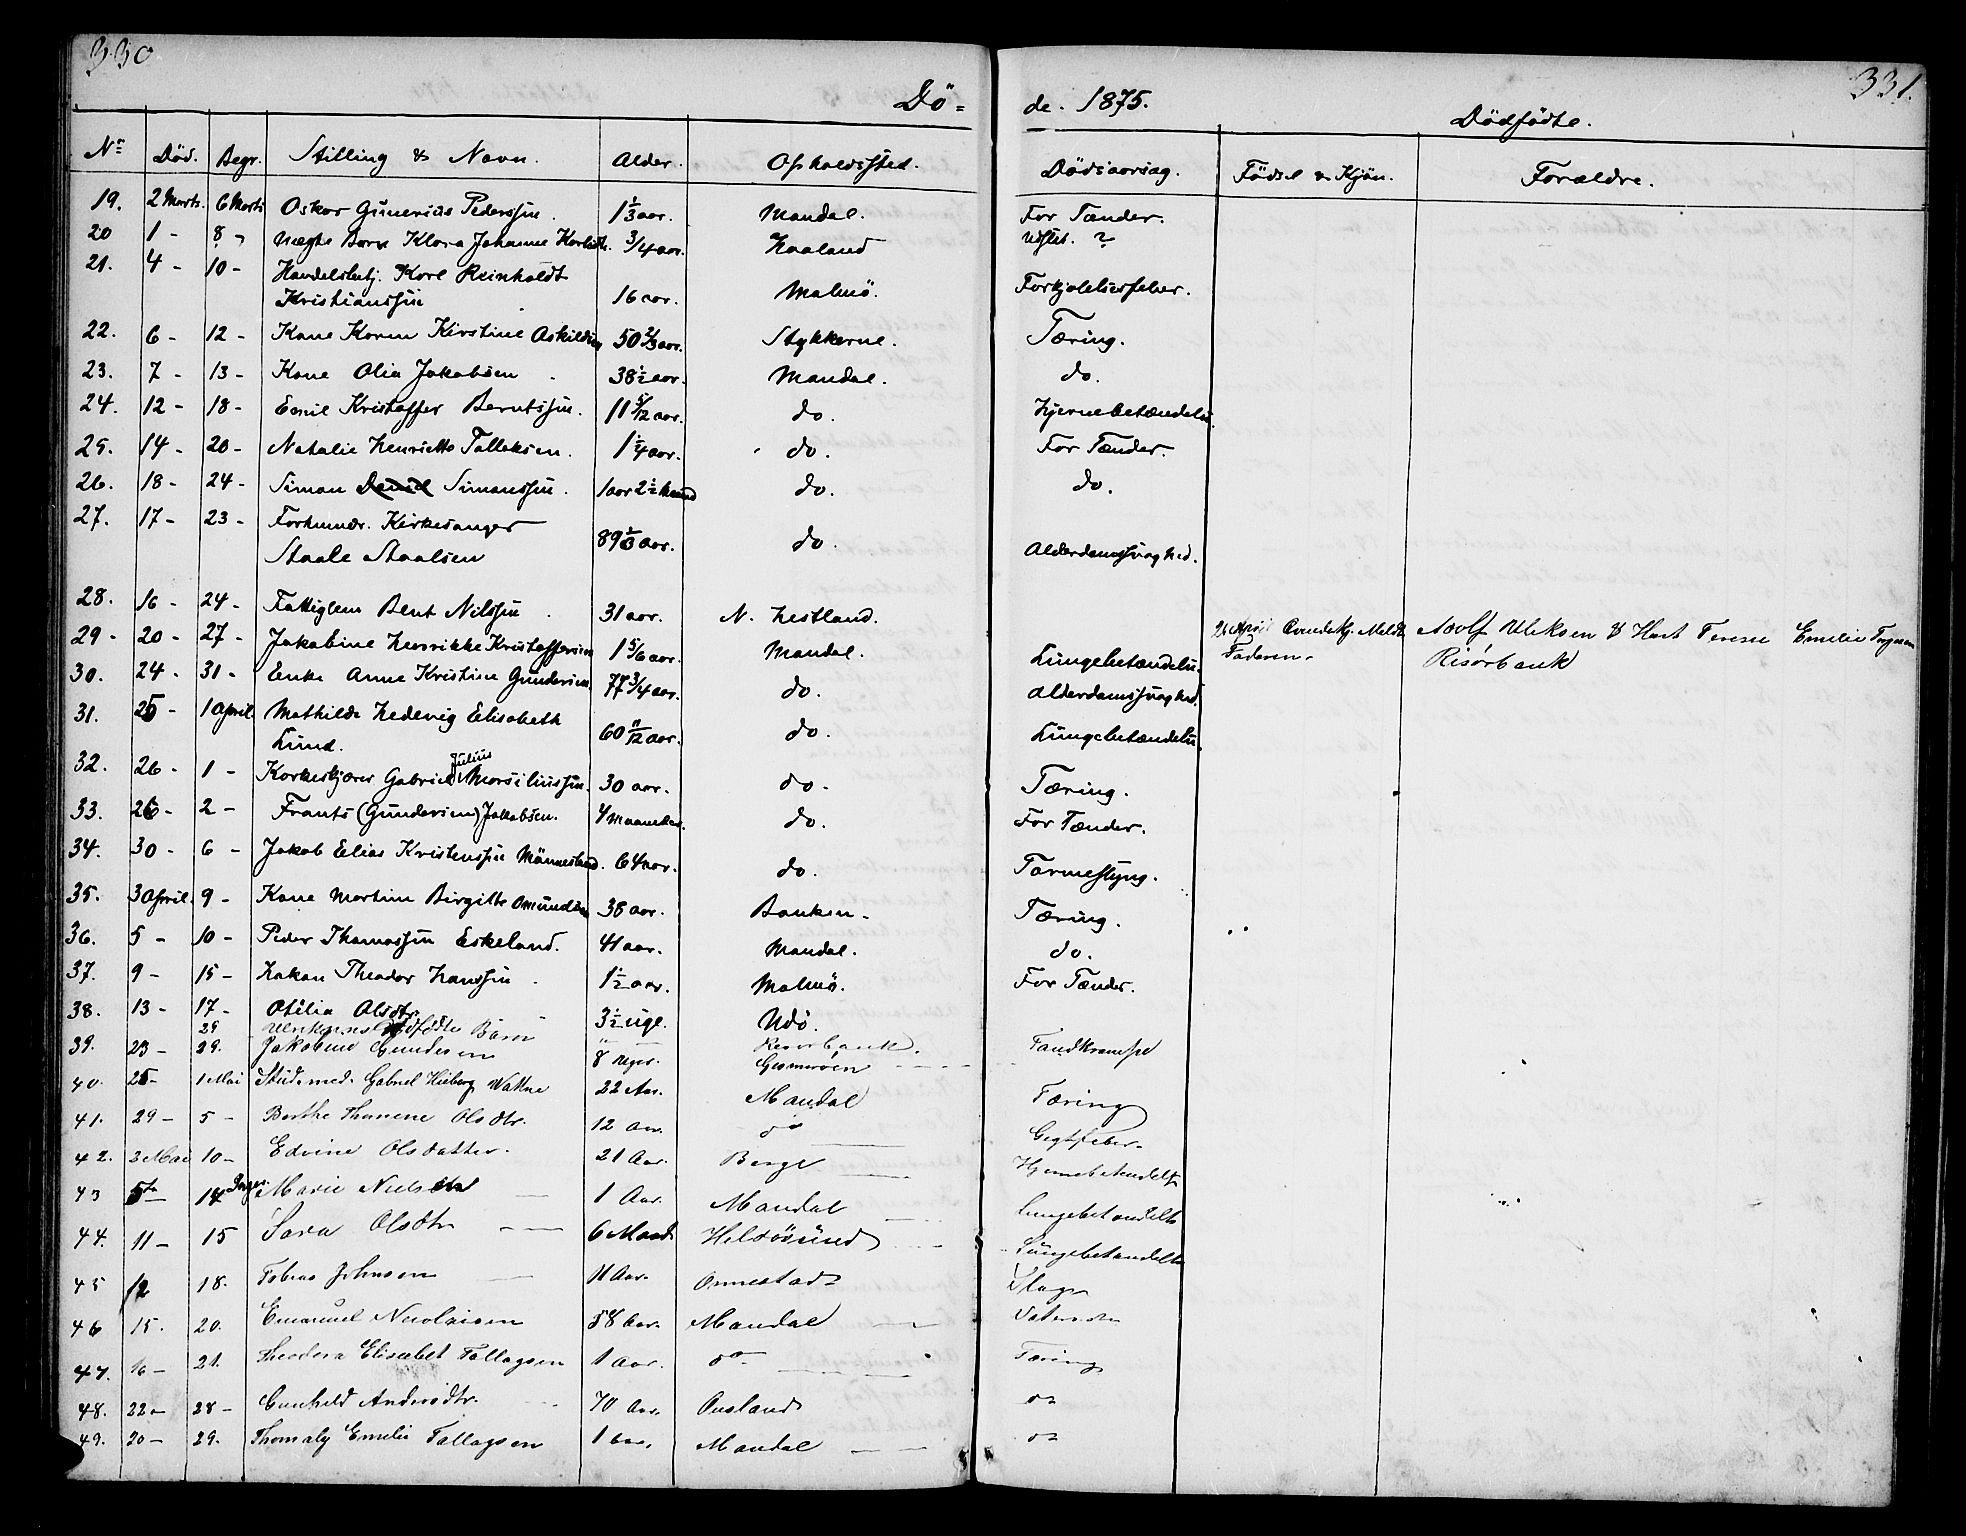 330
331.
Dö- de. 1875.
Dödfödte.
No Död. Begr. Stilling & Navn. Alder. Opholdssted. Dödsaarsag. Födsel & Kjön. Forældre.
19. 2 Marts. 6 Marts Oskar Gunerius Pederssön. 1 1/3 aar. Mandal. For Tænder.
20 1 - 8 - uægte Barn Klara Johanne Karlsdtr. 3/4 aar. Haaland Udslet. ?
21. 4 - 10 - Handelsbetj. Karl Reinholdt
Kristianssön 16 aar. Malmö. Forkjølelsesfeber.
22. 6 - 12 - Kone Karen Kirstine Askildsen 50 2/3 aar. Stykkerne. Tæring.
23. 7 - 13 - Kone Olia Jakobsen 38 1/2 aar. Mandal. do.
24. 12 - 18 - Emil Kristoffer Berntssön. 11 5/12 aar. do. Hjernebetændelse
25. 14 - 20 - Natalie Henriette Tallaksen. 1 1/4 aar. do. For Tænder.
26. 18 - 24 - Simon Daniel Simonssön. 1 aar 2 1/2 Maaned do. do.
27. 17 - 23 - Forhenvær. Kirkesanger
Staale Staalsen 89 1/3 aar. do. Alderdomssvaghed.
28. 16 - 24 - Fattiglem Bent Nilssön 31 aar. N. Hestland.
29 - 20 - 27 - Jakobine Henrikke Kristoffersen 1 5/6 aar. Mandal. Lungebetændelse. 26 April Qvindekj. Meldt Faderen. Adolf Ulriksen & Hust Terese Emilie
Risörbank
30. 24 - 31 - Enke Anne Kristine Gundersen. 77 3/4 aar. do. Alderdomssvaghed.
31. 25 - 1 April Mathilde Hedevig Elisabeth
Lund. 60 11/12 aar. do. Lungebetændelse.
32. 26 - 1 - Korkeskjærer Gabriel Julius Marsiliussön. 30 aar. do. Tæring.
33. 26 - 2 - Frants (Gundersen) Jakobsen. 4 Maaneder. do. For Tænder.
34. 30 - 6 - Jakob Elias Kristenssön Männestand. 64 aar. do. Tarmeslyng.
35. 3 April. 9 - Kone Martine Birgitte Omundsen 38 aar. Banken. Tæring.
36. 5 - 10 - Peder Thomassön Eskeland. 41 aar. Mandal. do.
37. 9 - 15 - Hakon Theodor Hanssön. 1 1/2 aar. Malmö. For Tænder.
38. 13 - 17 - Otilia Olsdtr. 3 1/2 uge. Udö.
29 Ulriksens dødfødte Barn " Risörbank.
39. 23 - 29. Jakobine Gundersen 8 Uger. Gismerøen Tandkrampe
40. 25 - 1 Mai Stud. med. Gabriel Kieberg Wattne 22 Aar. Mandal Tæring
41. 29 - 5 - Berthe Thomene Olsdtr. 12 Aar. do Gigtfeber
42. 3 Mai 10 - Edvine Olsdatter. 21 Aar. Berge Hjernebetændelse
43 5te 14 Inger Marie Nielsen 1 Aar. Mandal Lungebetændelse
44. 11 - 15 Sara Olsdtr 6 Maand. Helsösund Lungebetændelse
45 12 18. Tobias Johnsen 11 Aar. Onnestad Slag
46 15. 20. Emanuel Nicolaisen 58 Aar. Mandal Vatersot
47. 16 - 21. Theodora Elisabet Tallagsen 1 Aar. do Tæring
48. 22 - 28 - Gunhild Andersdtr. 70 Aar. Ousland do
49. 20 - 29. Thomaly Emelie Tallagsen 1 Aar. Mandal do